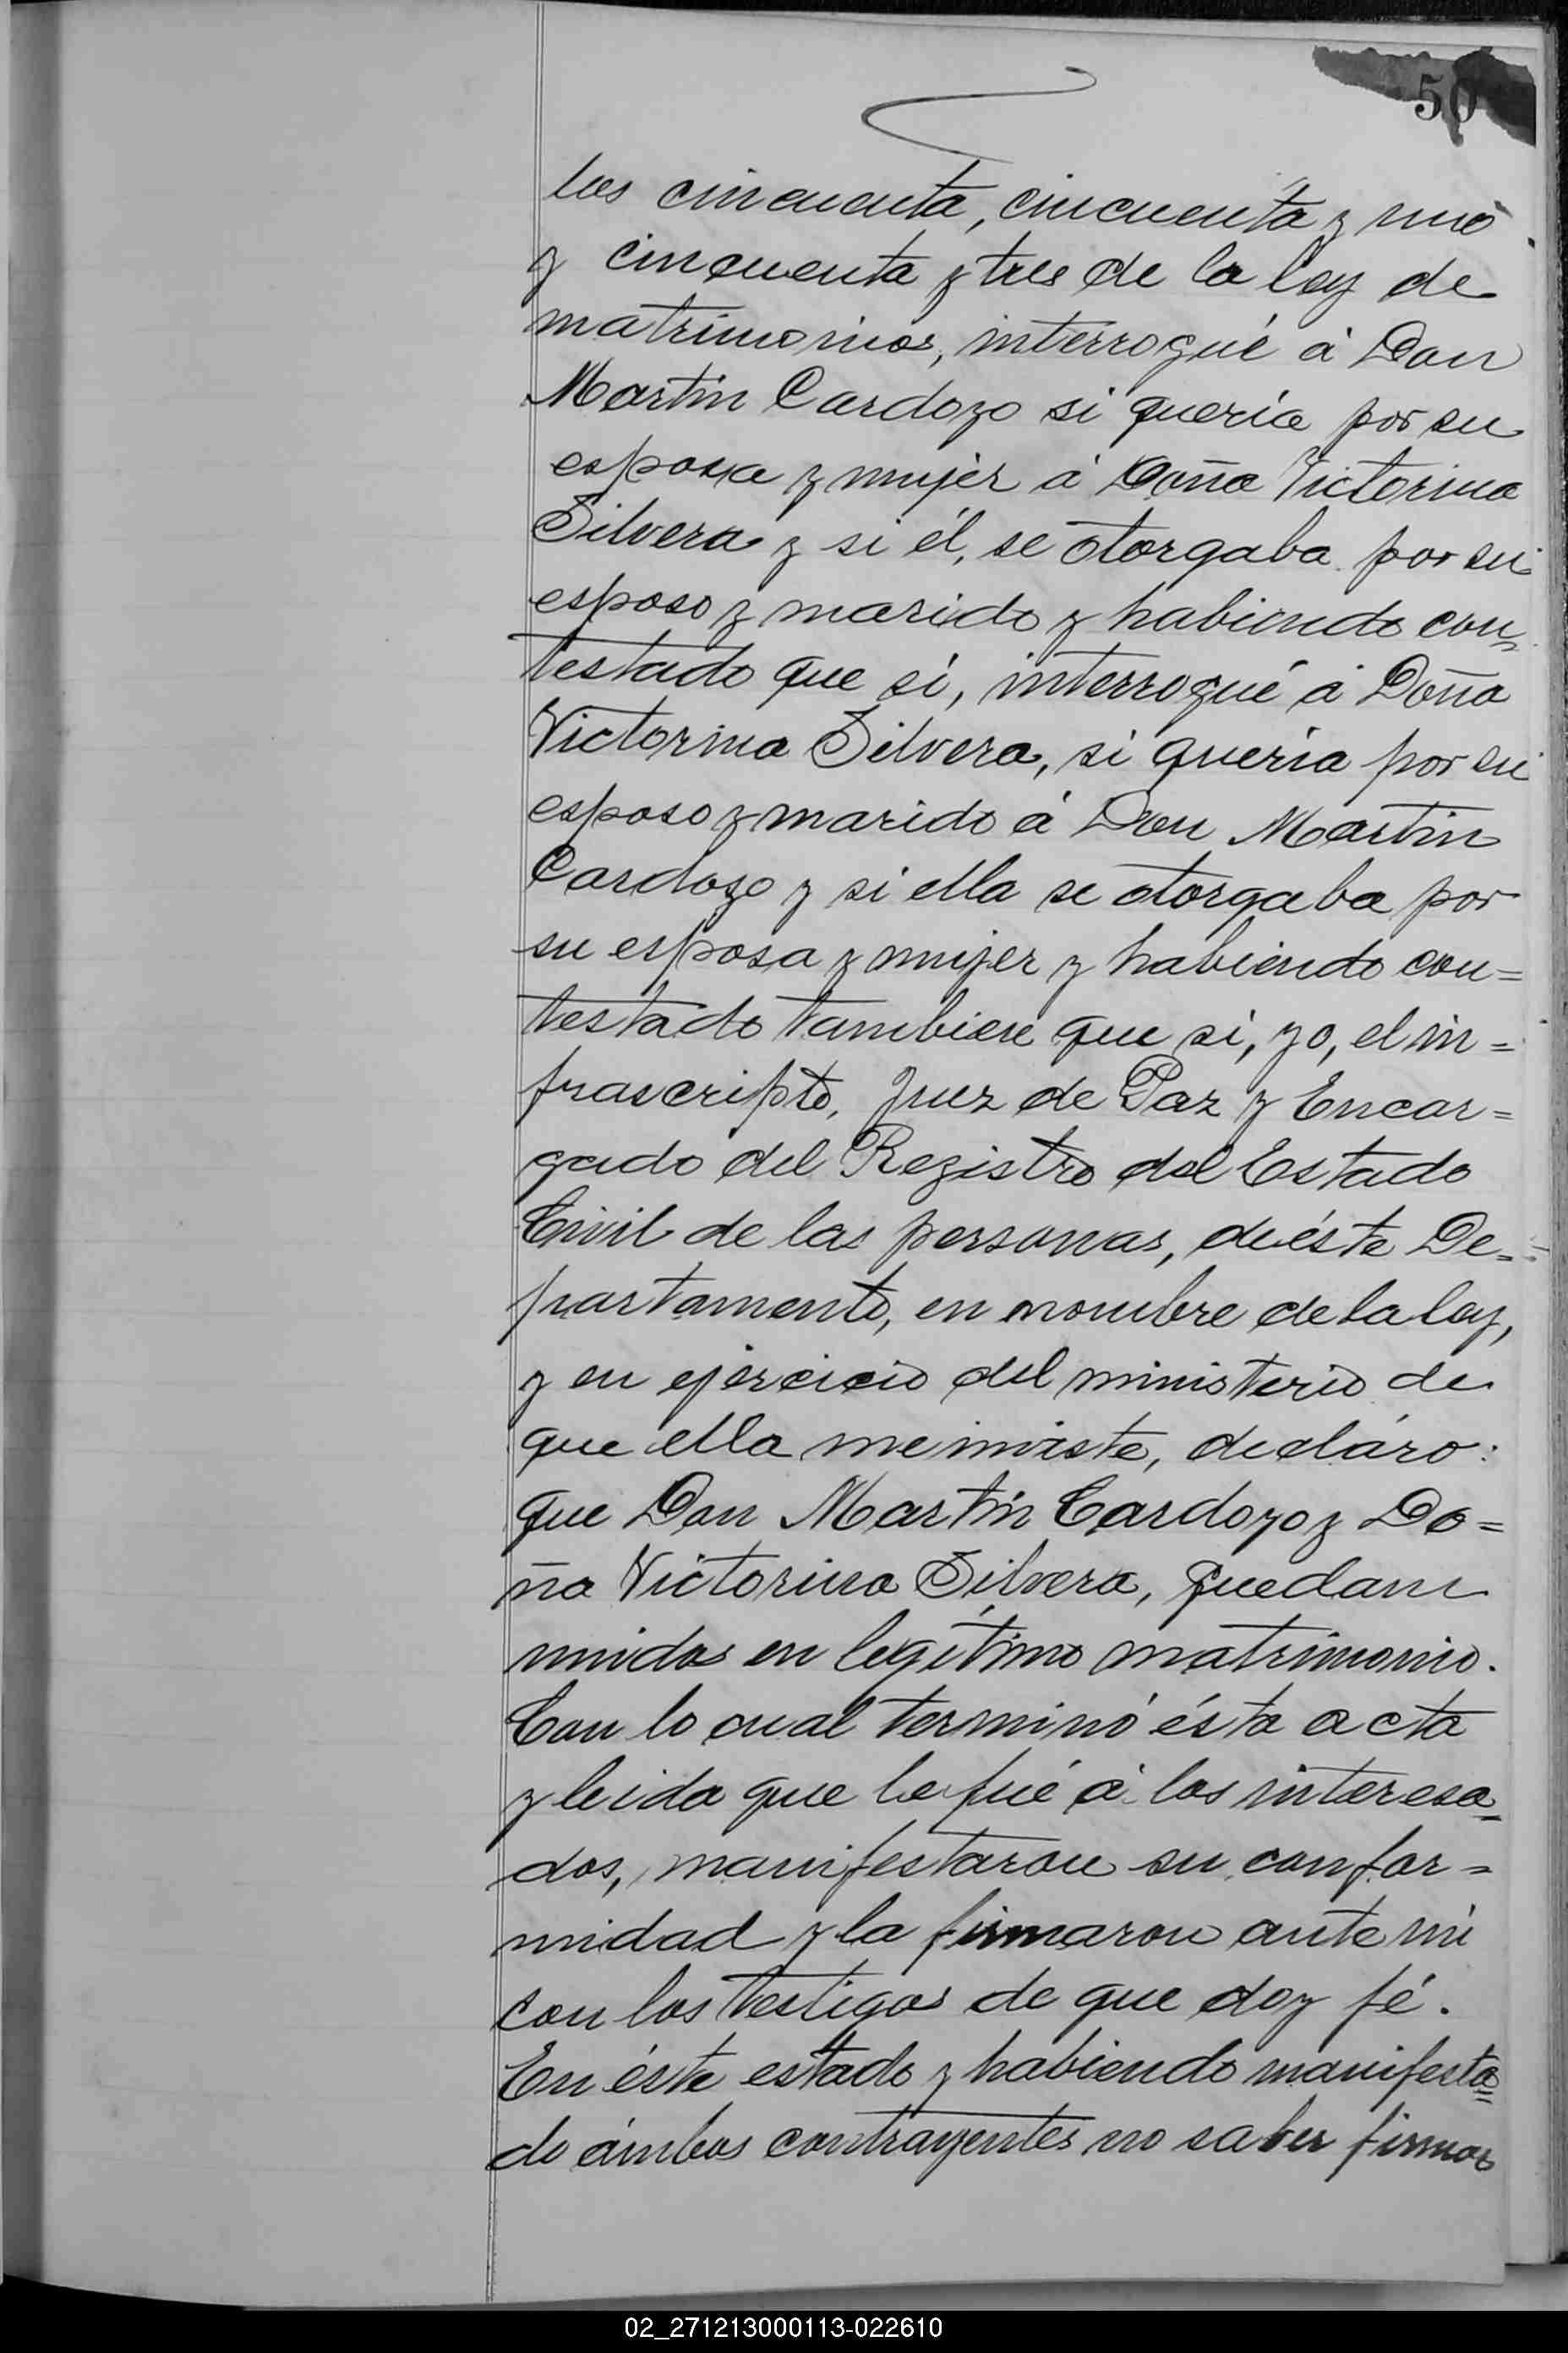 50
los cincuenta, cincuenta y uno
y cincuenta y tres de la ley de
matrimonios, interrogué á Don
Martin Cardozo si queria por su
esposa y mujer á Doña Victorina
Silvera y si él, se otorgaba por su
esposo y marido y habiendo con=
testado que si, interrogué á Doña
Victorina Silvera, si queria por su
esposo y marido á Don Martin
Cardozo y si ella se otorgaba por
su esposa y mujer y habiendo con=
testado tambien que si, yo, el in=
frascripto, Juez de Paz y Encar=
gado del Registro del Estado
Civil de las personas, de éste De=
partamento, en nombre de la ley,
y en ejercicio del ministerio de
que ella me inviste, decláro:
que Don Martin Cardozo y Do=
ña Victorina Silvera, quedan
unidos en legítimo matrimonio.
Con lo cual terminó ésta acta
y leida que le fué á los interesa=
dos, manifestaron su confor=
midad y la firmaron ante mi
con los testigos de que doy fé.
En éste estado y habiendo manifesta=
do ámbos contrayentes no saber firmar
02_271213000113-022610